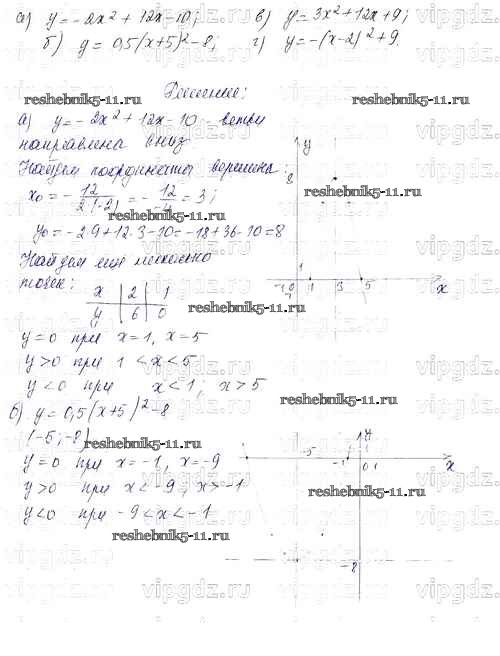 а) y = -2x² + 12x - 10; в) y = 3x² + 12x + 9;
б) y = 0,5(x+5)² - 8; г) y = -(x-2)² + 9.
Решение:
reshebnik5-11.ru
reshebnik5-11.ru
а) y = -2x² + 12x - 10 - ветви
направлена вниз
Найдем координаты вершины:
x₀ = - 12 / 2·(-2) = - 12 / -4 = 3;
y₀ = -2·9 + 12·3 - 10 = -18 + 36 - 10 = 8
Найдем еще несколько
точек:
x | 2 | 1
y | 6 | 0
y = 0 при x = 1, x = 5
y > 0 при 1 < x < 5
y < 0 при x < 1; x > 5
y
8
1
-1 0 1 3 5 x
-1
reshebnik5-11.ru
reshebnik5-11.ru
reshebnik5-11.ru
б) y = 0,5(x+5)² - 8
(-5; -8)
y = 0 при x = -1, x = -9
y > 0 при x < -9, x > -1
y < 0 при -9 < x < -1
y
1
-5 -1 0 1 x
-8
reshebnik5-11.ru
reshebnik5-11.ru
reshebnik5-11.ru
vipgdz.ru